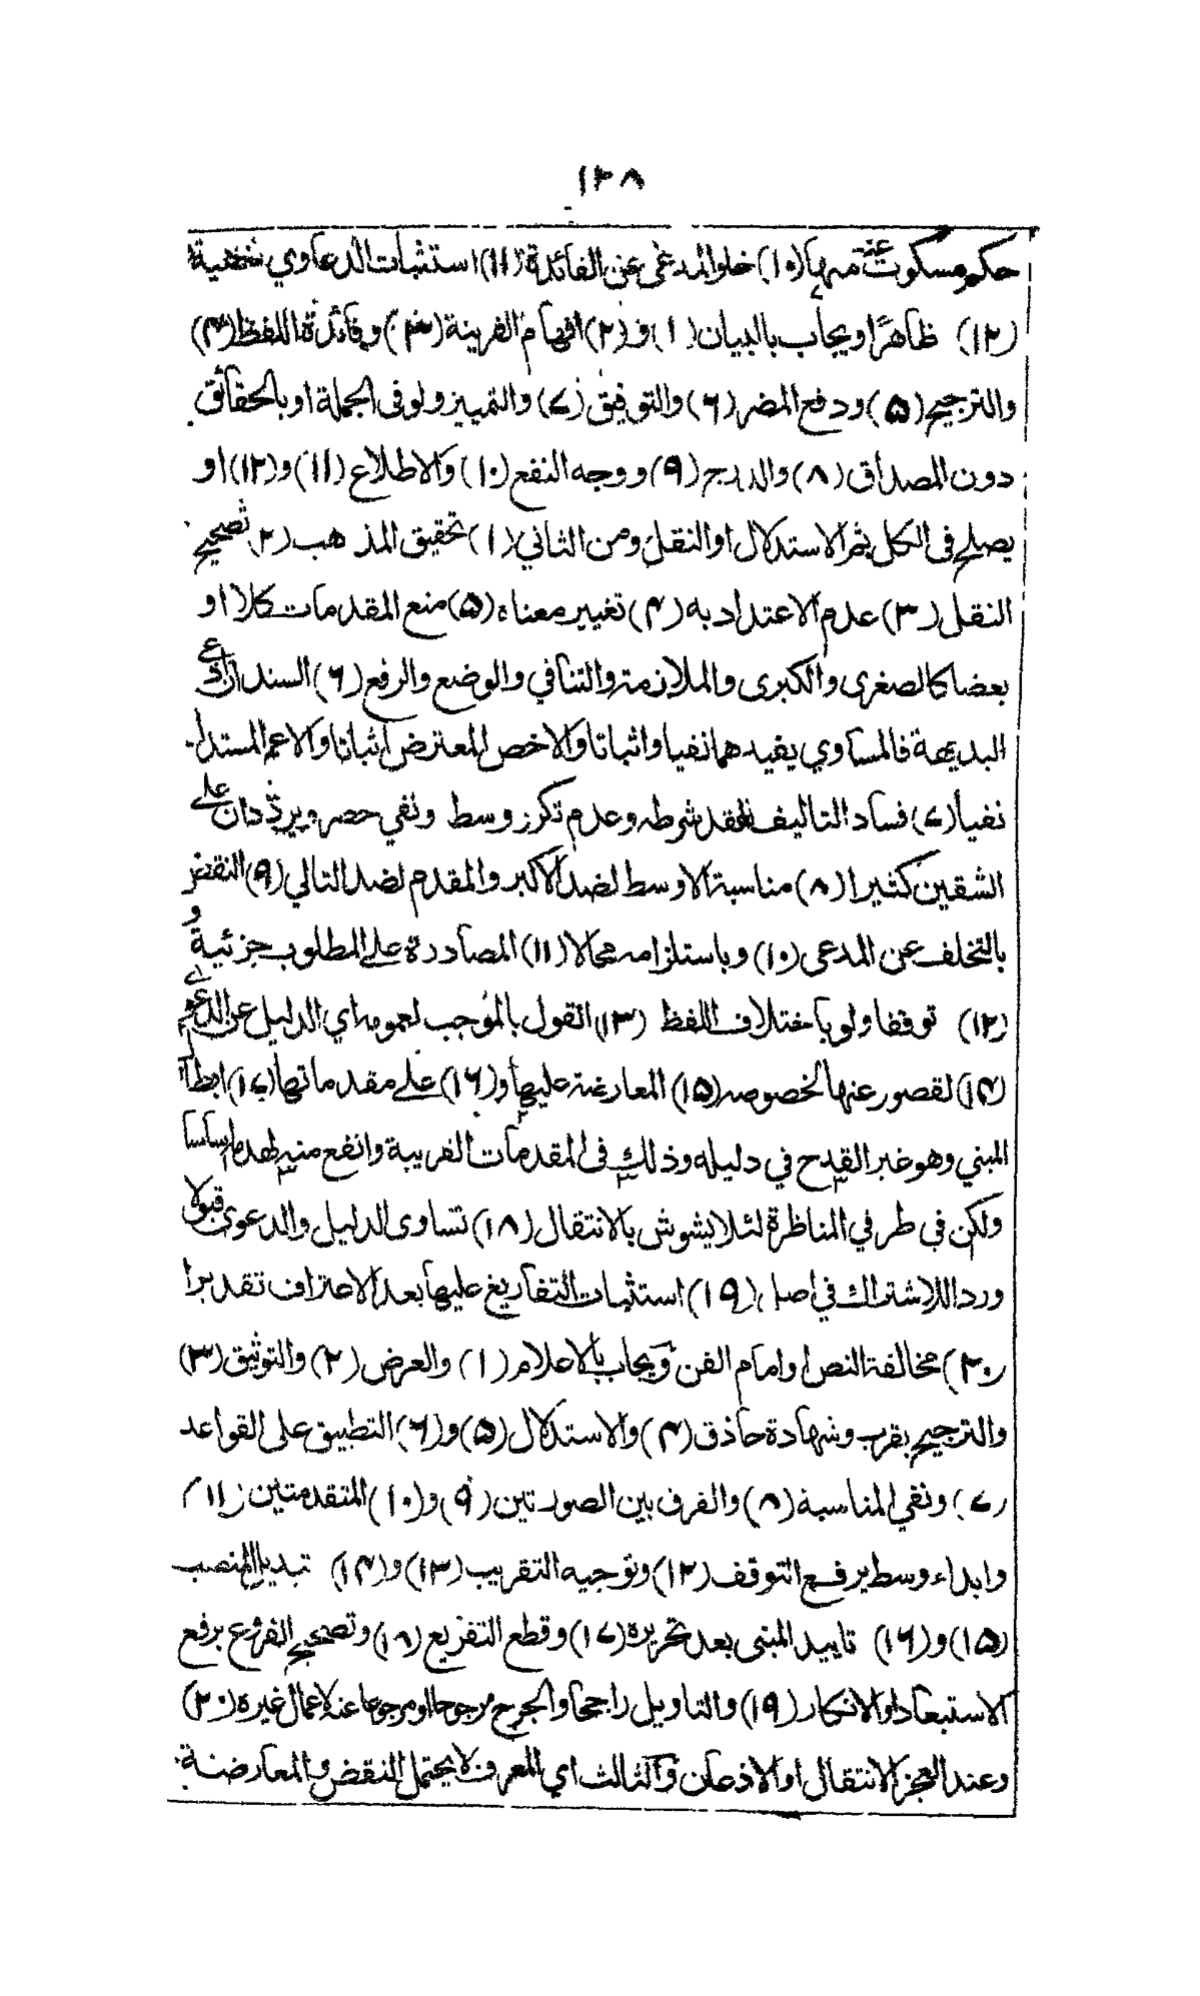 ١٢٨
حكم مسكوت عنه منها (١٠) خلو المدعى عن الفائدة (١١) استثبات الدعاوي
(١٢) ظاهرًا ويجاب بالبيان (١) و (٢) افهام القرينة (٣) وفائدة اللفظ (٤)
والترجيح (٥) ودفع المضر (٦) والتوفيق (٧) والتمييز ولو فى الجملة او بالحقائق
دون المصداق (٨) والدرج (٩) ووجه النفع (١٠) والاطلاع (١١) و (١٢) او
يصلح فى الكل ثم الاستدلال او النقل ومن الثاني (١) تحقيق المذهب (٢) تصحيح
النقل (٣) عدم الاعتداد به (٤) تغيير معناه (٥) منع المقدمات كلا او
بعضا كالصغرى والكبرى والملازمة والتنافي والوضع والرفع (٦) السند
البديهة فالمساوي يفيدهما نفيا واثباتا والاخص المعترض اثباتا والاعم المستدل
نفيا (٧) فساد التاليف لفقد شرطه وعدم تكرر وسط ونفي حصر ويرددان على
الشقين كثيرا (٨) مناسبة الاوسط لضد الاكبر والمقدم لضد التالي (٩) النقض
بالتخلف عن المدعى (١٠) وباستلزامه محالا (١١) المصادرة على المطلوب جزئية و
(١٢) توقفا ولو باختلاف اللفظ (١٣) القول بالموجب لعمومه اي الدليل عن الدعوى
(١٤) لقصور عنها لخصوصه (١٥) المعارضة عليها و (١٦) على مقدماتها (١٧) ابطال
المبني وهو غير القدح في دليله وذلك فى المقدمات الغريبة وانفع منه لهدم الاساس
ولكن فى طرفي المناظرة لئلا يشوش بالانتقال (١٨) تساوى الدليل والدعوى قبولا
وردا للاشتراك في اصل (١٩) استثبات التفاريع عليها بعد الاعتراف تقديرا
(٢٠) مخالفة النص او امام الفن ويجاب بالاعلام (١) والعرض (٢) والتوثيق (٣)
والترجيح بقرب وشهادة حاذق (٤) والاستدلال (٥) و (٦) التطبيق على القواعد
(٧) ونفي المناسبة (٨) والفرق بين الصورتين (٩) و (١٠) المتقدمتين (١١)
وابداء وسط يرفع التوقف (١٢) وتوجيه التقريب (١٣) و (١٤) تبديل المنصب
(١٥) و (١٦) تاييد المبنى بعد تحريره (١٧) وقطع التفريع (١٨) وتصحيح الفروع برفع
الاستبعاد او الانكار (١٩) والتاويل راجحا والجرح مرجوحا او مرجوعا عنه لاعمال غيره (٢٠)
وعند العجز الانتقال او الاذعان والثالث اي المعرف لا يحتمل النقض والمعارضة